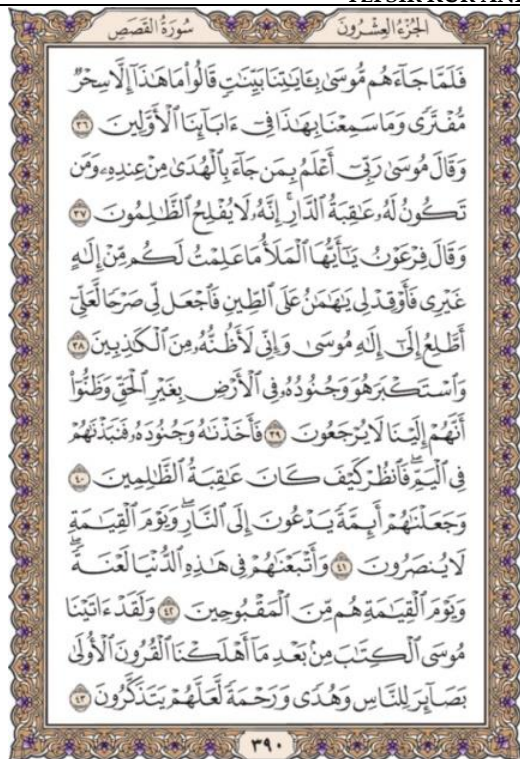 TEFSİR KUR'AN
سُورَةُ القَصَصِ
الجُزْءُ العِشْرُونَ
فَلَمَّا جَآءَهُم مُّوسَىٰ بِـَٔايَٰتِنَا بَيِّنَٰتٍ قَالُوا۟ مَا هَٰذَآ إِلَّا سِحْرٌ
مُّفْتَرًى وَمَا سَمِعْنَا بِهَٰذَا فِىٓ ءَابَآئِنَا ٱلْأَوَّلِينَ ٣٦
وَقَالَ مُوسَىٰ رَبِّىٓ أَعْلَمُ بِمَن جَآءَ بِٱلْهُدَىٰ مِنْ عِندِهِۦ وَمَن
تَكُونُ لَهُۥ عَٰقِبَةُ ٱلدَّارِ ۖ إِنَّهُۥ لَا يُفْلِحُ ٱلظَّٰلِمُونَ ٣٧
وَقَالَ فِرْعَوْنُ يَٰٓأَيُّهَا ٱلْمَلَأُ مَا عَلِمْتُ لَكُم مِّنْ إِلَٰهٍ
غَيْرِى فَأَوْقِدْ لِى يَٰهَٰمَٰنُ عَلَى ٱلطِّينِ فَٱجْعَل لِّى صَرْحًا لَّعَلِّىٓ
أَطَّلِعُ إِلَىٰٓ إِلَٰهِ مُوسَىٰ وَإِنِّى لَأَظُنُّهُۥ مِنَ ٱلْكَٰذِبِينَ ٣٨
وَٱسْتَكْبَرَ هُوَ وَجُنُودُهُۥ فِى ٱلْأَرْضِ بِغَيْرِ ٱلْحَقِّ وَظَنُّوٓا۟
أَنَّهُمْ إِلَيْنَا لَا يُرْجَعُونَ ٣٩ فَأَخَذْنَٰهُ وَجُنُودَهُۥ فَنَبَذْنَٰهُمْ
فِى ٱلْيَمِّ ۖ فَٱنظُرْ كَيْفَ كَانَ عَٰقِبَةُ ٱلظَّٰلِمِينَ ٤٠
وَجَعَلْنَٰهُمْ أَئِمَّةً يَدْعُونَ إِلَى ٱلنَّارِ ۖ وَيَوْمَ ٱلْقِيَٰمَةِ
لَا يُنصَرُونَ ٤١ وَأَتْبَعْنَٰهُمْ فِى هَٰذِهِ ٱلدُّنْيَا لَعْنَةً ۖ
وَيَوْمَ ٱلْقِيَٰمَةِ هُم مِّنَ ٱلْمَقْبُوحِينَ ٤٢ وَلَقَدْ ءَاتَيْنَا
مُوسَى ٱلْكِتَٰبَ مِنۢ بَعْدِ مَآ أَهْلَكْنَا ٱلْقُرُونَ ٱلْأُولَىٰ
بَصَآئِرَ لِلنَّاسِ وَهُدًى وَرَحْمَةً لَّعَلَّهُمْ يَتَذَكَّرُونَ ٤٣
٣٩٠